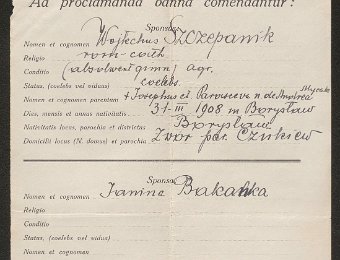 Ad proclamanda banna comendantur:
Sponsus
Nomen et cognomen Wojtechus Szczepanik
Religio rom-cath
Conditio (absolwent gimn) agr.
Status, (coelebs vel viduus) coelebs
Nomen et cognomen parentum + Josephus et n. de
Dies, mensis et annus nativitatis 31-III 1908 m Borysław
Nativitatis locus, parochia et districtus Borysław
Domicilii locus (N. domus) et parochia Zwór par. Czukiew
Sponsa
Nomen et cognomen Janina
Religio
Conditio
Status, (coelebs vel vidua)
Nomen et cognomen parentum